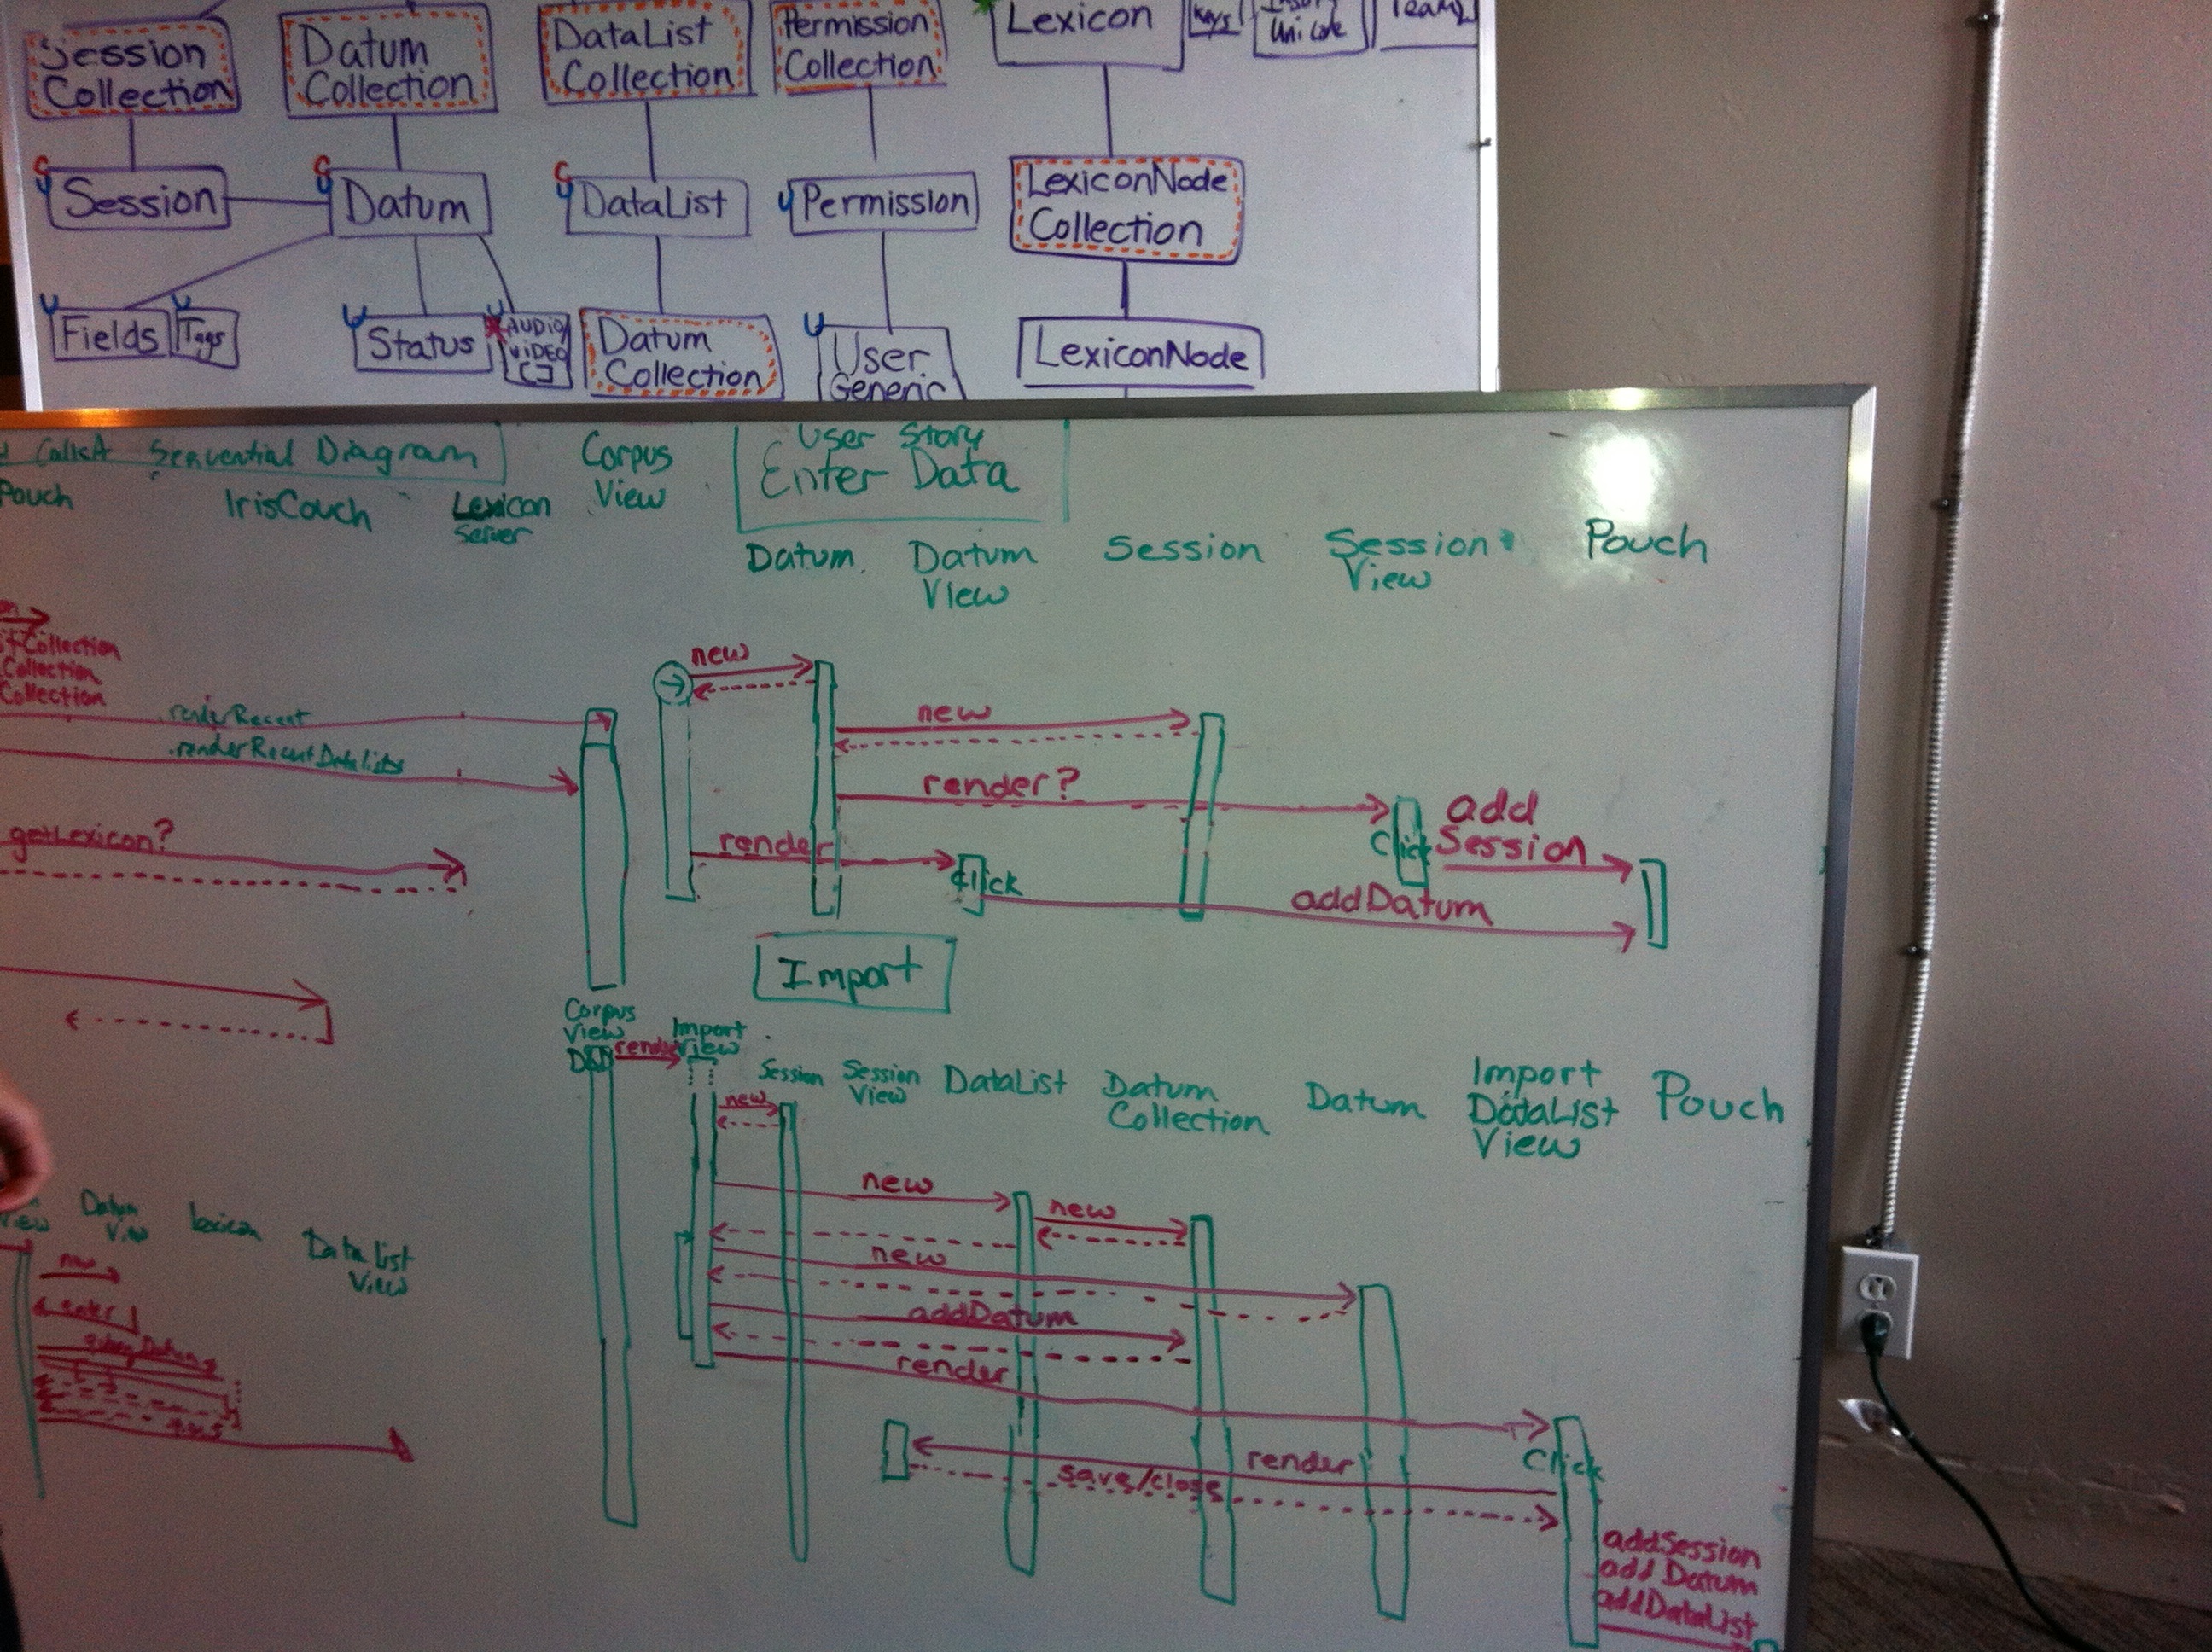 Session
Collection
Datum
Collection
DataList
Collection
Permission
Collection
Lexicon
Keys
Unicode
Teams
Session
Datum
DataList
Permission
LexiconNode
Collection
Fields
Tags
Status
AUDIO/
VIDEO
[]
Datum
Collection
User
Generic
LexiconNode
Sequential Diagram
Pouch
IrisCouch
Lexicon
Server
Corpus
View
User Story
Enter Data
Datum
Datum
View
Session
Session
View
Pouch
Collection
Collection
Collection
renderRecent
renderRecentDatalists
getLexicon?
new
new
render?
render
Click
Click
add
Session
addDatum
Import
Corpus
View
render
Import
View
Session
Session
View
DataList
Datum
Collection
Datum
Import
DataList
View
Pouch
new
new
new
new
addDatum
render
Click
render
save/close
addSession
add Datum
addDataList
View
Datum
View
lexicon
Data list
View
new